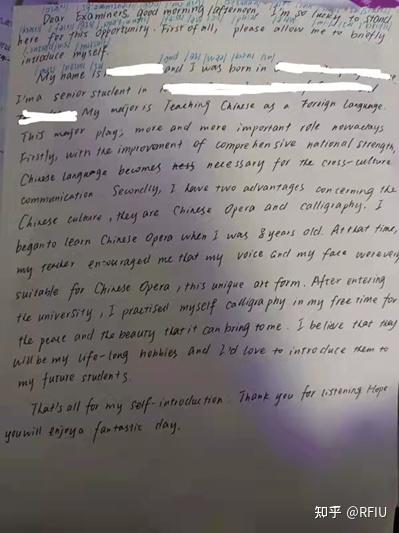 Dear Examiners, Good morning/afternoon. I'm so lucky to stand
here for this opportunity. First of all, please allow me to briefly
introduce myself.
My name is and I was born in
I'm a senior student in
My major is Teaching Chinese as a Foreign Language.
This major plays more and more important role nowadays
Firstly, with the improvement of comprehensive national strength,
Chinese language becomes necessary for the cross-culture
communication. Secondly, I have two advantages concerning the
Chinese culture, they are Chinese Opera and calligraphy. I
began to learn Chinese Opera when I was 8 years old. At that time,
my teacher encouraged me that my voice and my face were very
suitable for Chinese Opera, this unique art form. After entering
the university, I practised myself calligraphy in my free time for
the peace and the beauty that it can bring to me. I believe that they
will be my life-long hobbies and I'd love to introduce them to
my future students.
That's all for my self-introduction. Thank you for listening. Hope
you will enjoy a fantastic day.
知乎 @RFIU